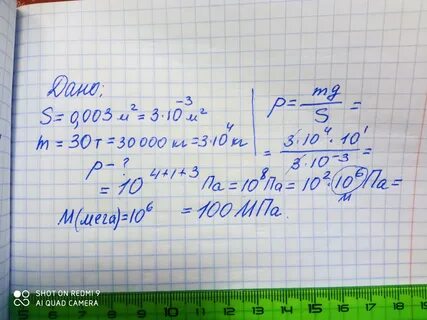 Дано:
S = 0,003 м² = 3·10⁻³ м²
m = 30 т = 30 000 кг = 3·10⁴ кг
p - ?
p = mg/S =
= 3·10⁴·10¹/3·10⁻³ =
= 10⁴⁺¹⁺³ Па = 10⁸ Па = 10²·10⁶ Па =
м
М(мега) = 10⁶ = 100 МПа.
SHOT ON REDMI 9
AI QUAD CAMERA
1 2 3 4 5 6 7 8 9 10 11 12